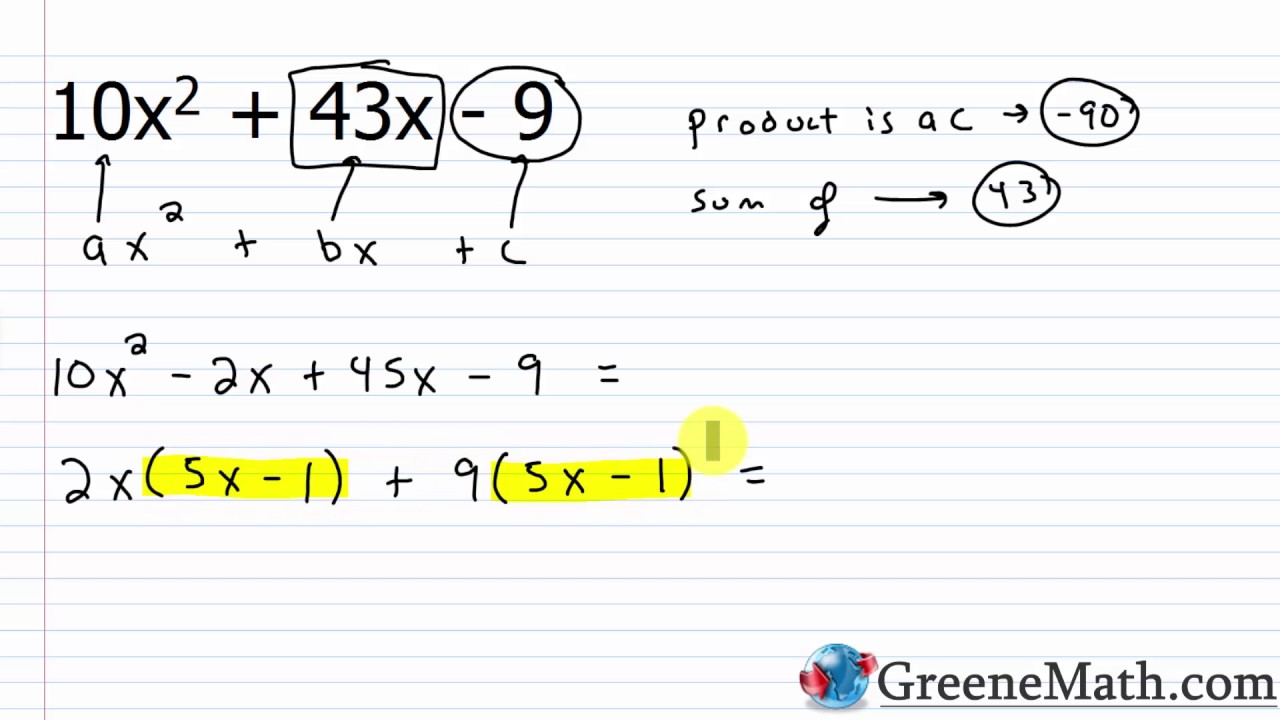 10x² + 43x - 9
product is ac → -90
sum of → 43
ax² + bx + c
10x² - 2x + 45x - 9 =
2x(5x - 1) + 9(5x - 1) =
GreeneMath.com